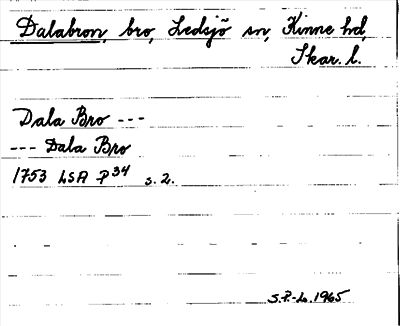 Dalabron, bro, Ledsjö sn, Kinne hd,
Skar. l.
Dala Bro ---
--- Dala Bro
1753 LSA P34 s. 2.
S.P.-L. 1965